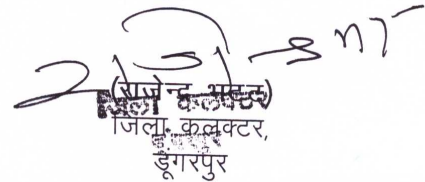 (राजेन्द्र भट्ट)
जिला कलक्टर
जिला कलक्टर,
डूंगरपुर